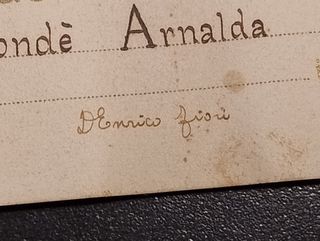 ondè Arnalda
DEnrico fiori